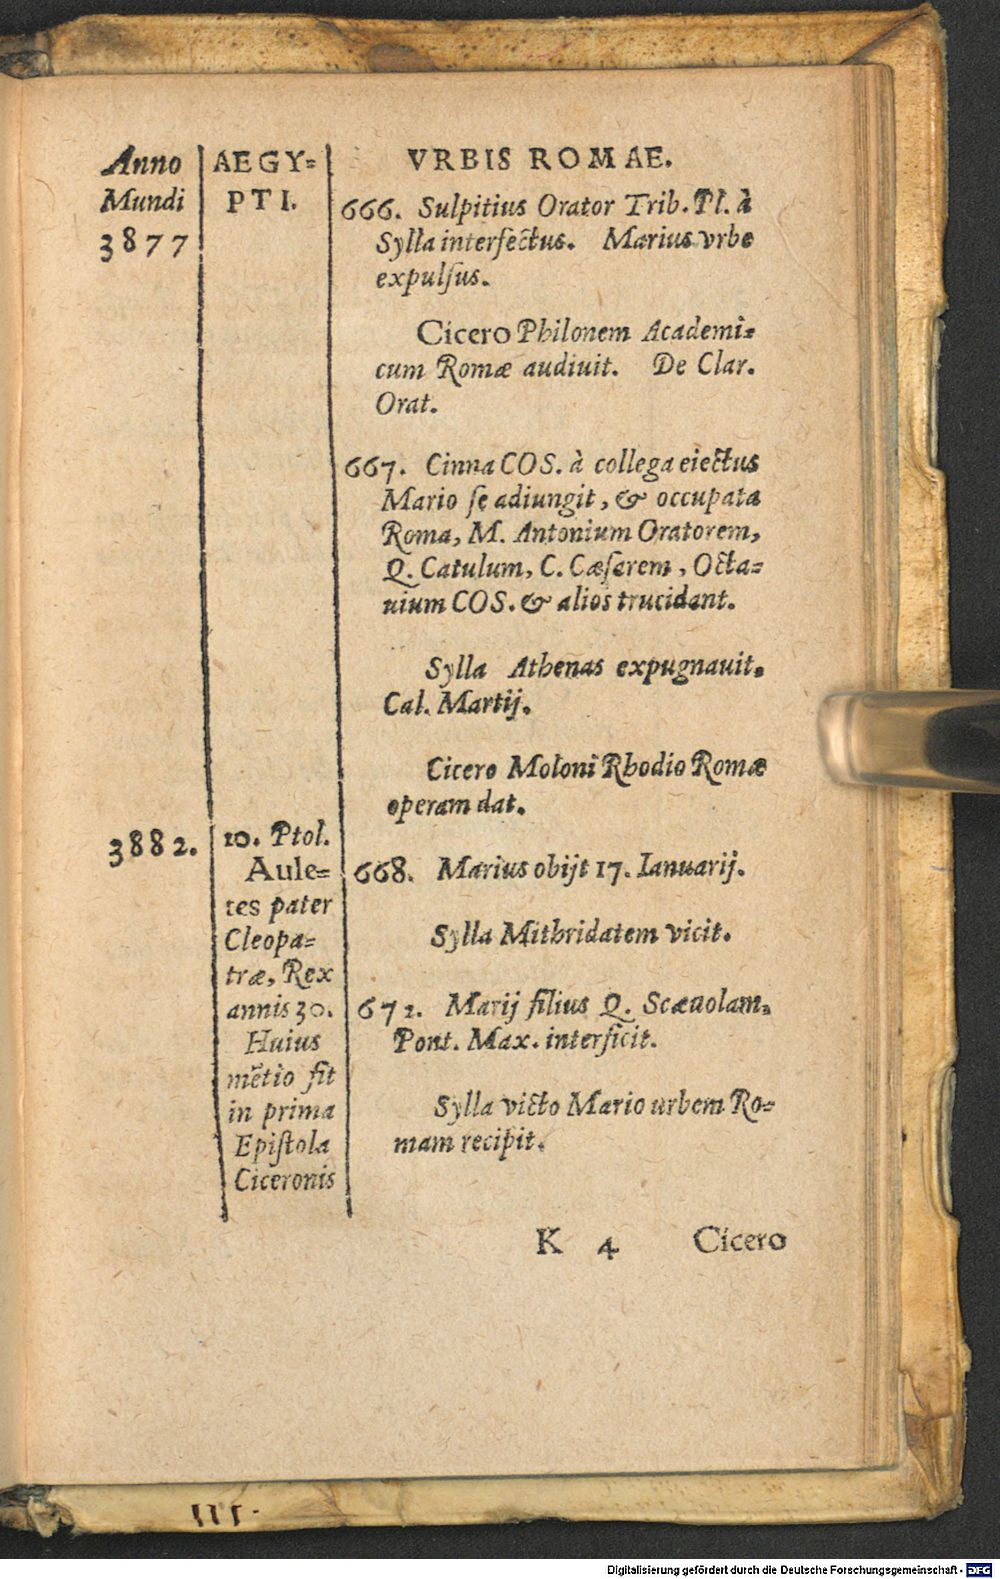 Anno
Mundi
3877
3882.
AEGY=
PTI.
10. Ptol.
Aule=
tes pater
Cleopa=
træ, Rex
annis 30.
Huius
mētio fit
in prima
Epiſtola
Ciceronis
VRBIS ROMAE.
666. Sulpitius Orator Trib. Pl. à
Sylla interfectus. Marius vrbe
expulſus.
Cicero Philonem Academi=
cum Romæ audiuit. De Clar.
Orat.
667. Cinna COS. à collega eiectus
Mario ſe adiungit, & occupata
Roma, M. Antonium Oratorem,
Q. Catulum, C. Cæſarem, Octa=
uium COS. & alios trucidant.
Sylla Athenas expugnauit.
Cal. Martij.
Cicero Moloni Rhodio Romæ
operam dat.
668. Marius obijt 17. Ianuarij.
Sylla Mithridatem vicit.
672. Marij filius Q. Scæuolam,
Pont. Max. interficit.
Sylla victo Mario urbem Ro=
mam recipit.
K 4 Cicero
Digitalisierung gefördert durch die Deutsche Forschungsgemeinschaft - DFG